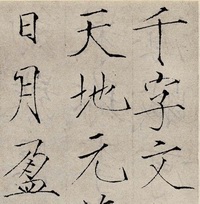 千字文
天地元
日月盈